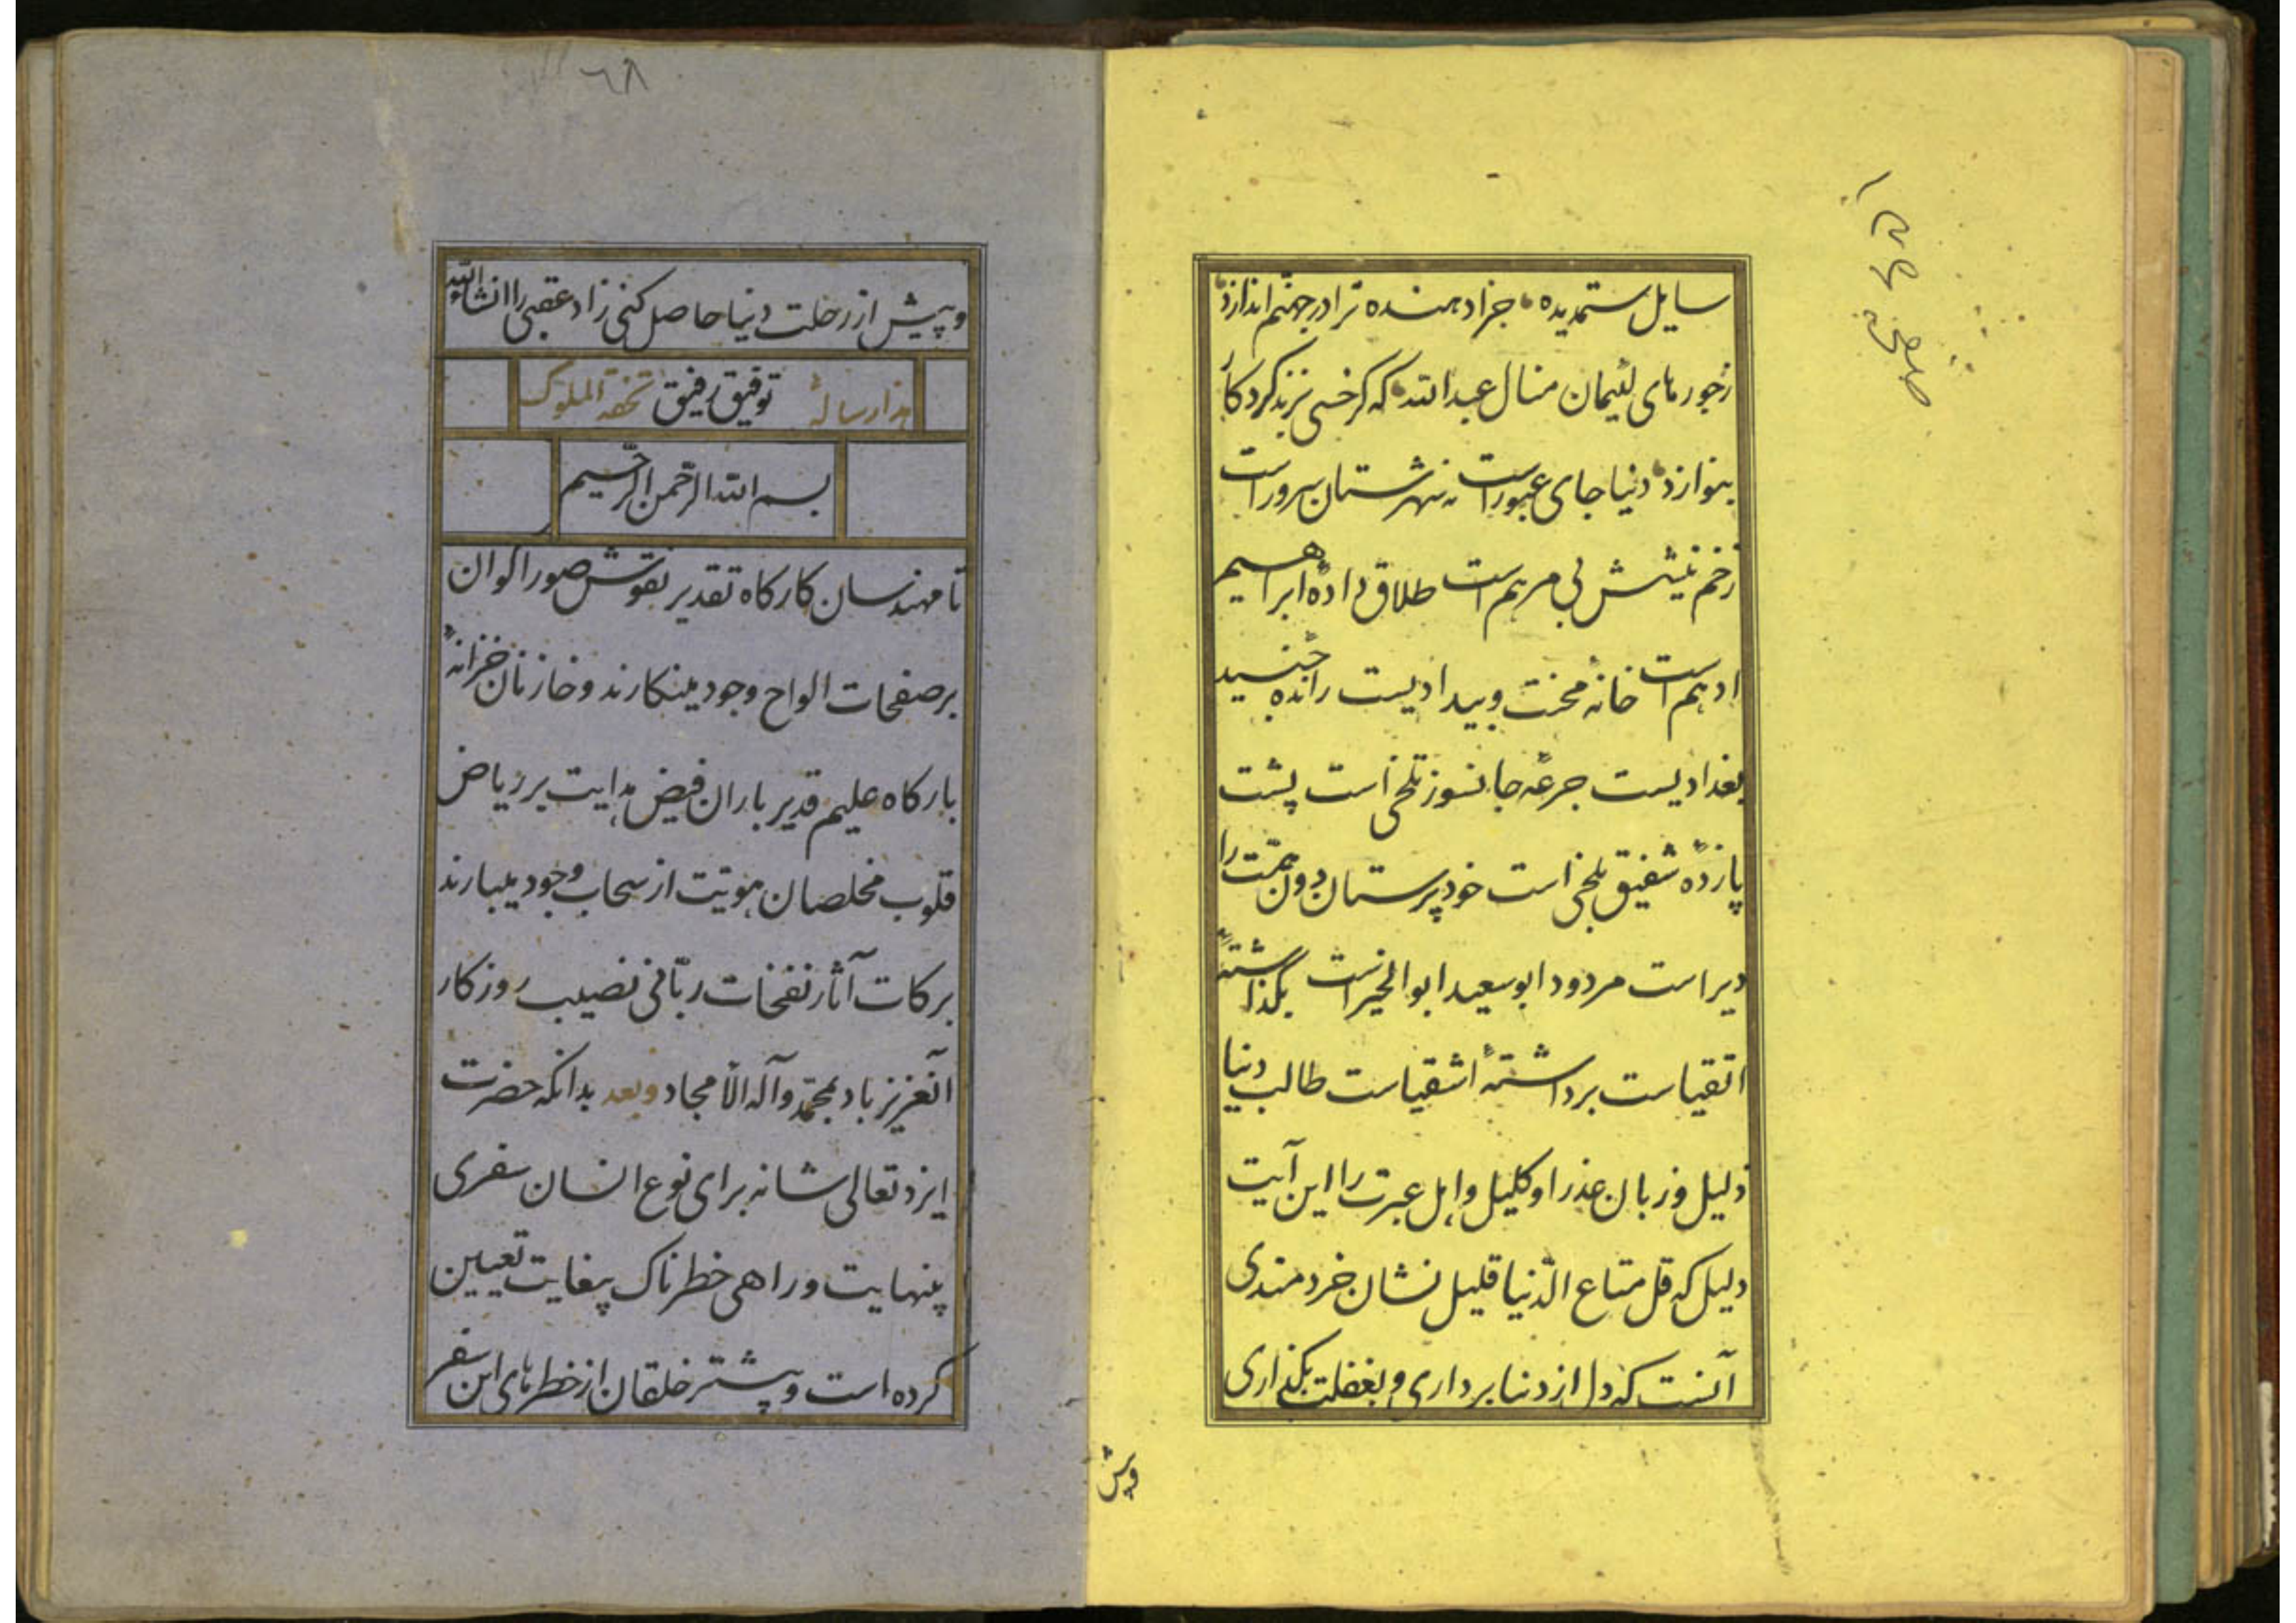 سایل ستمدیده جزا دهنده ترا در جهنم اندازد
زجورهای لئیمان منال عبدالله که کر خسی نزند کردکار
بنوازد دنیا جای عبور است نه شهرستان سرور است
زخم نیشش بی مرهم است طلاق دادهٔ ابراهیم
ادهم است خانه محنت و بیدادیست راندهٔ جنید
بغدادیست جرعهٔ جانسوز تلخی است پشت
پا زدهٔ شفیق بلخی است خودپرستان دون همت را
دیر است مردود ابوسعید ابوالخیر است بگذاشتهٔ
اتقیاست برداشتهٔ اشقیاست طالب دنیا
ذلیل و زبان عذر او کلیل و اهل عبرت را این آیت
دلیل که قل متاع الدّنیا قلیل نشان خردمندی
آنست که دل از دنیا برداری و بغفلت نکذاری
وپیش
٦٨
و پیش از رحلت دنیا حاصل کنی زاد عقبی را انشاالله
هذا رسالهٔ توفیق رفیق تحفة الملوک
بسم الله الرّحمن الرّحیم
تا مهندسان کارکاه تقدیر نقوش صور اکوان
بر صفحات الواح وجود مینکارند و خازنان خزانهٔ
بارکاه علیم قدیر باران فیض هدایت بر ریاض
قلوب مخلصان هویّت از سحاب وجود میبارند
برکات آثار نفخات ربّانی نصیب روزکار
آنعزیز باد بمحمّد و آله الأمجاد وبعد بدانکه حضرت
ایزد تعالی شانه برای نوع انسان سفری
بینهایت و راهی خطرناک بیغایت تعیین
کرده است و بیشتر خلقان از خطرهای این سفر